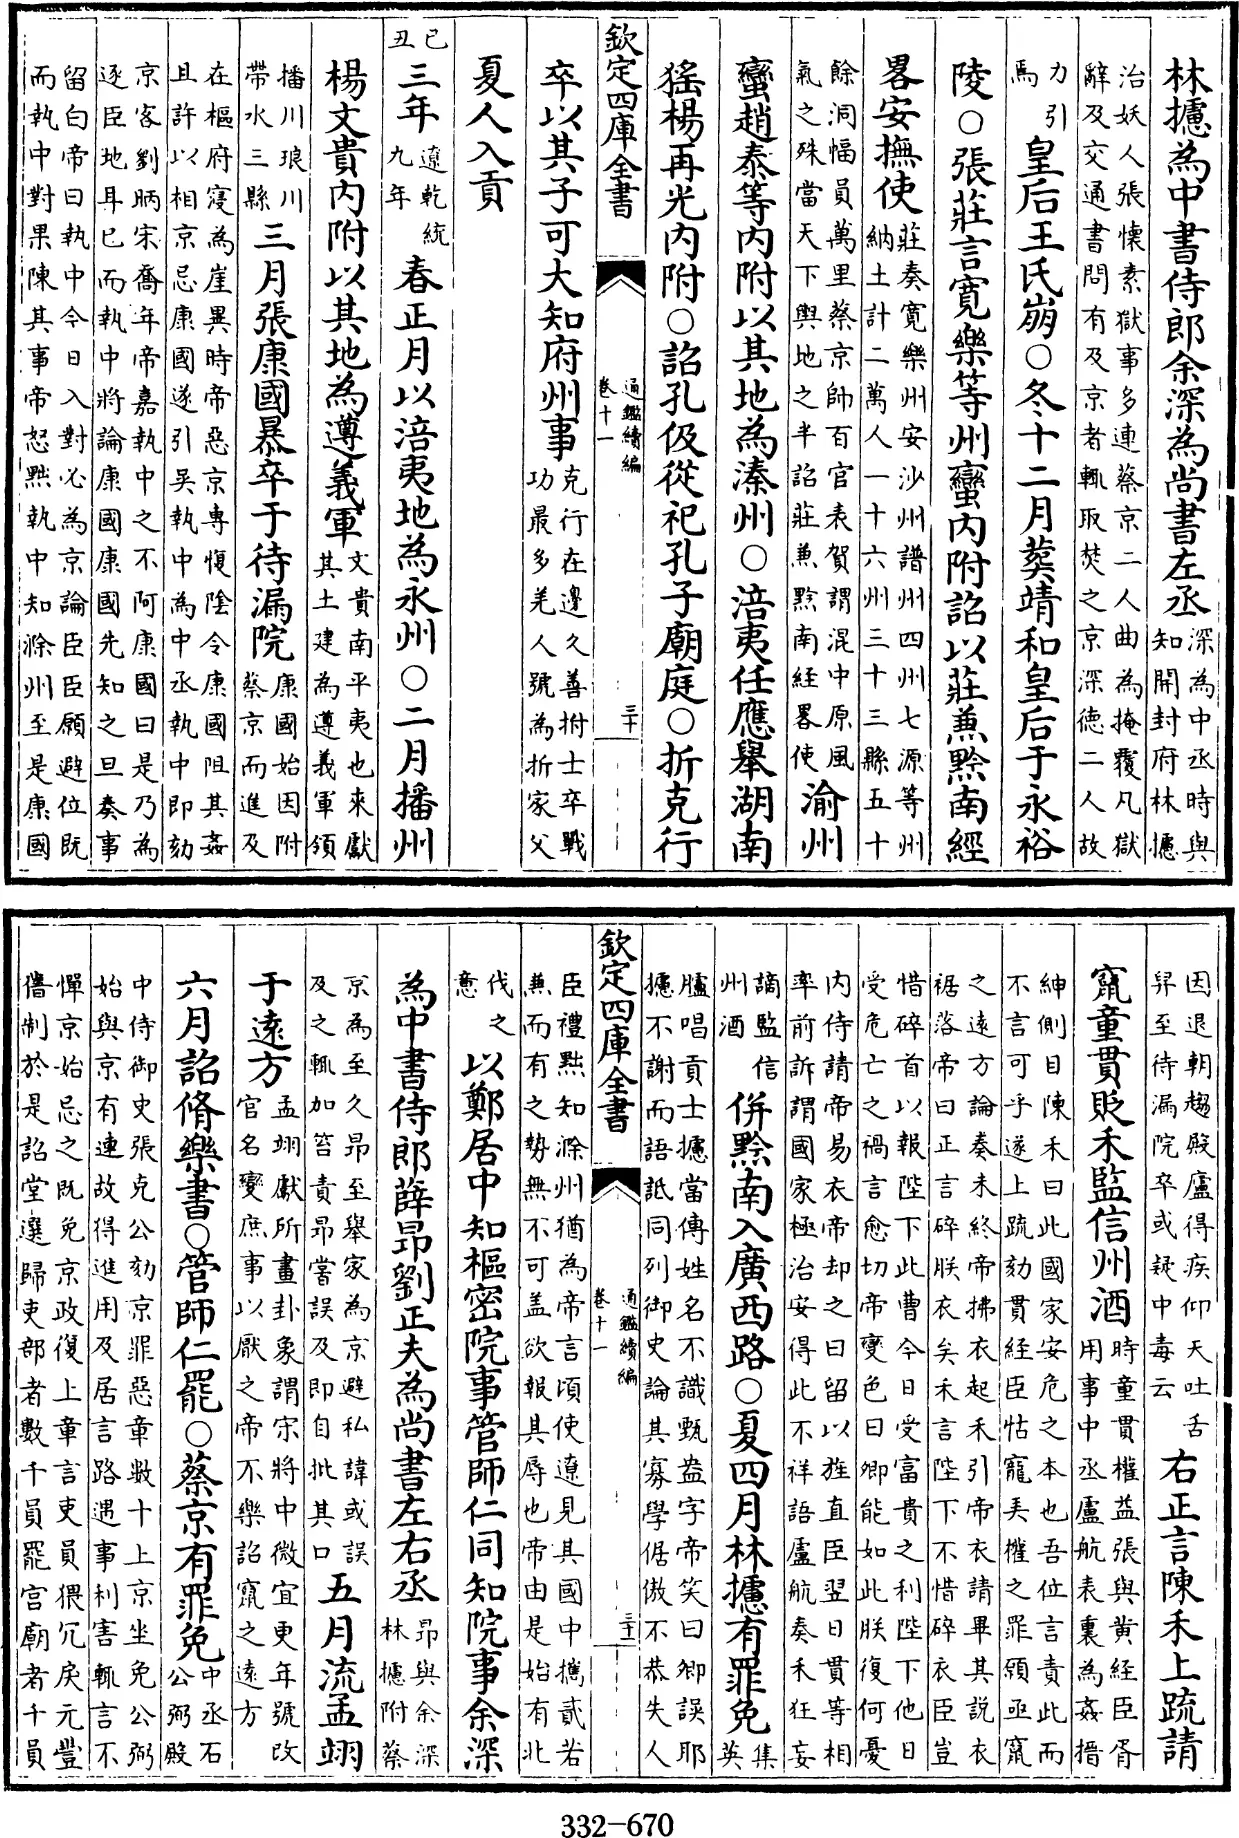 林攄為中書侍郎余深為尚書左丞
深為中丞時與
知開封府林攄
治妖人張懷素獄事多連蔡京二人曲為掩覆凡獄
辭及交通書問有及京者輒取焚之京深德二人故
力引
焉
皇后王氏崩○冬十二月葬靖和皇后于永裕
陵○張莊言寛樂等州蠻内附詔以莊兼黔南經
畧安撫使
莊奏寛樂州安沙州譜州四州七源等州
納土計二萬人一十六州三十三縣五十
餘洞幅員萬里蔡京帥百官表賀謂混中原風
氣之殊當天下輿地之半詔莊兼黔南經畧使
渝州
蠻趙泰等内附以其地為溱州○涪夷任應舉湖南
猺楊再光内附○詔孔伋從祀孔子廟庭○折克行
欽定四庫全書
通鑑續編
卷十一
三十
卒以其子可大知府州事
克行在邊久善拊士卒戰
功最多羌人號為折家父
夏人入貢
己丑
三年
遼乾統
九年
春正月以涪夷地為永州○二月播州
楊文貴内附以其地為遵義軍
文貴南平夷也來獻
其土建為遵義軍領
播川琅川
帶水三縣
三月張康國暴卒于待漏院
康國始因附
蔡京而進及
在樞府寖為崖異時帝惡京專愎陰令康國阻其姦
且許以相京忌康國遂引吳執中為中丞執中即劾
京客劉昞宋喬年帝嘉執中之不阿康國曰是乃為
逐臣地耳已而執中將論康國康國先知之旦奏事
留白帝曰執中今日入對必為京論臣臣願避位既
而執中對果陳其事帝怒黜執中知滁州至是康國
因退朝趨殿廬得疾仰天吐舌
舁至待漏院卒或疑中毒云
右正言陳禾上疏請
竄童貫貶禾監信州酒
時童貫權益張與黄經臣胥
用事中丞盧航表裏為姦搢
紳側目陳禾曰此國家安危之本也吾位言責此而
不言可乎遂上疏劾貫經臣怙寵弄權之罪願亟竄
之遠方論奏未終帝拂衣起禾引帝衣請畢其説衣
裾落帝曰正言碎朕衣矣禾言陛下不惜碎衣臣豈
惜碎首以報陛下此曹今日受富貴之利陛下他日
受危亡之禍言愈切帝變色曰卿能如此朕復何憂
内侍請帝易衣帝却之曰留以旌直臣翌日貫等相
率前訴謂國家極治安得此不祥語盧航奏禾狂妄
謫監信
州酒
併黔南入廣西路○夏四月林攄有罪免
集
英
臚唱貢士攄當傳姓名不識甄盎字帝笑曰卿誤耶
攄不謝而語詆同列御史論其寡學倨傲不恭失人
欽定四庫全書
通鑑續編
卷十一
三十一
臣禮黜知滁州猶為帝言頃使遼見其國中攜貳若
兼而有之勢無不可盖欲報其辱也帝由是始有北
伐之
意
以鄭居中知樞密院事管師仁同知院事余深
為中書侍郎薛昂劉正夫為尚書左右丞
昂與余深
林攄附蔡
京為至久昂至舉家為京避私諱或誤
及之輒加笞責昂嘗誤及即自批其口
五月流孟翊
于遠方
孟翊獻所畫卦象謂宋將中微宜更年號改
官名變庶事以厭之帝不樂詔竄之遠方
六月詔脩樂書○管師仁罷○蔡京有罪免
中丞石
公弼殿
中侍御史張克公劾京罪惡章數十上京坐免公弼
始與京有連故得進用及居言路遇事利害輒言不
憚京始忌之既免京政復上章言吏員猥冗戾元豐
舊制於是詔堂選歸吏部者數千員罷宫廟者千員
332-670